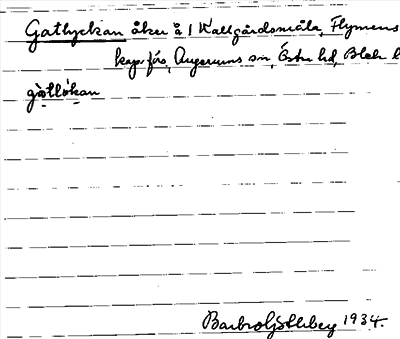 Gatlyckan åker å 1 Kallgårdsmåla, Flymens
kapförs, Augerums sn, Östra hd, Blek l
gàtlókan
Barbro 1934.